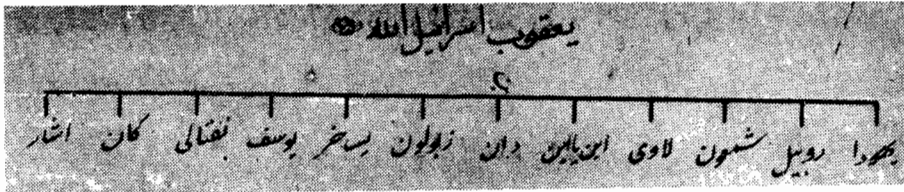 یعقوب اسرائیل الله
یهودا روبیل شمعون لاوی ابن یامین دان زبولون یسخر یوسف نفتالی کان اشار